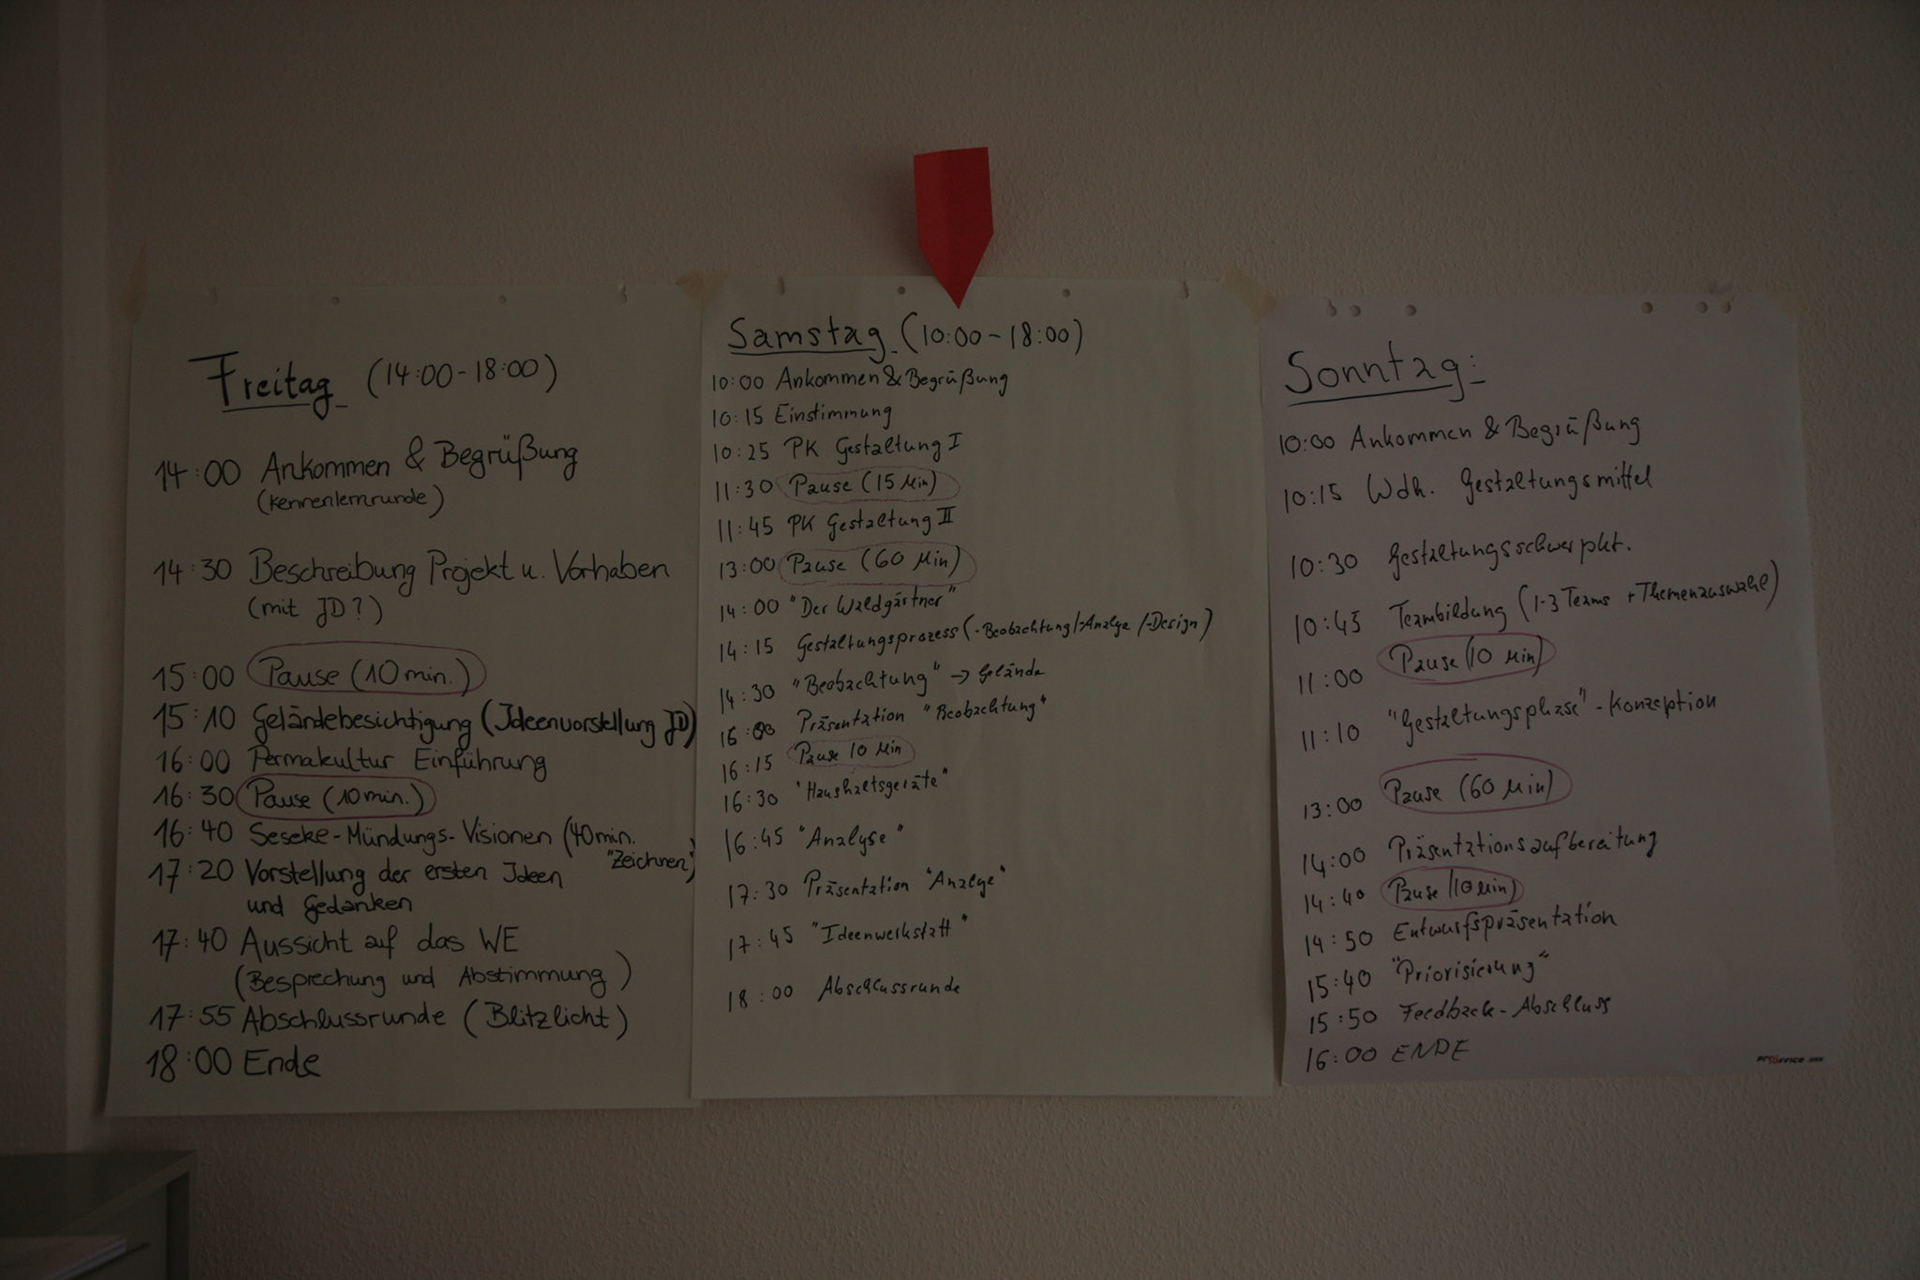 Freitag (14:00-18:00)
14:00 Ankommen & Begrüßung
(Kennenlernrunde)
14:30 Beschreibung Projekt u. Vorhaben
(mit JD?)
15:00 Pause (10 min.)
15:10 Geländebesichtigung (Ideenvorstellung JD)
16:00 Permakultur Einführung
16:30 Pause (10 min.)
16:40 Seseke-Mündungs-Visionen (40 min.
"Zeichnen")
17:20 Vorstellung der ersten Ideen
und Gedanken
17:40 Aussicht auf das WE
(Besprechung und Abstimmung)
17:55 Abschlussrunde (Blitzlicht)
18:00 Ende
Samstag (10:00-18:00)
10:00 Ankommen & Begrüßung
10:15 Einstimmung
10:25 PK Gestaltung I
11:30 Pause (15 Min)
11:45 PK Gestaltung II
13:00 Pause (60 Min)
14:00 "Der Waldgärtner"
14:15 Gestaltungsprozess (-Beobachtung/-Analye/-Design)
14:30 "Beobachtung" → Gelände
16:00 Präsentation "Beobachtung"
16:15 Pause 10 Min
16:30 "Haushaltsgeräte"
16:45 "Analyse"
17:30 Präsentation "Analye"
17:45 "Ideenwerkstatt"
18:00 Abschlussrunde
Sonntag:
10:00 Ankommen & Begrüßung
10:15 Wdh. Gestaltungsmittel
10:30 Gestaltungsschwerpkt.
10:45 Teambildung (1-3 Teams + Themenauswahl)
11:00 Pause (10 Min)
11:10 "Gestaltungsphase" - Konzeption
13:00 Pause (60 Min)
14:00 Präsentationsaufbereitung
14:40 Pause (10 Min)
14:50 Entwurfspräsentation
15:40 "Priorisierung"
15:50 Feedback-Abschluss
16:00 ENDE